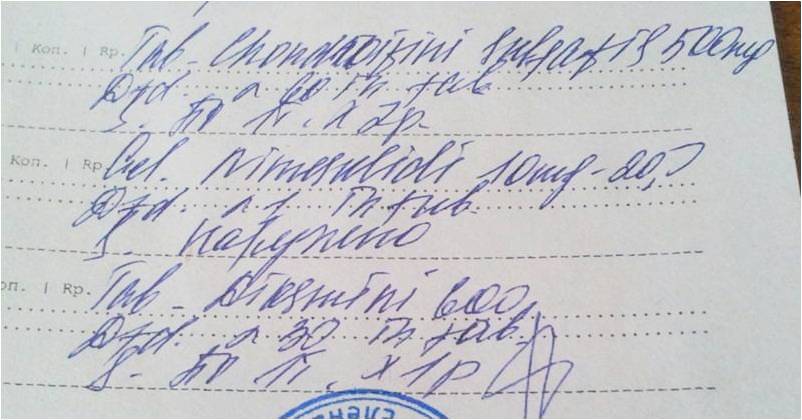 | Коп. | Rp. Tab. Chondroitini sulfatis 500mg
D.t.d. n 60 in tab.
S. По 1т. х 2р.
Коп. | Rp. Gel. Nimesulidi 10mg - 20,0
D.t.d. n 1 in tub.
S. Наружно
оп. | Rp. Tab. 600
D.t.d. n 30 in tab.
S. По 1т. х 1р